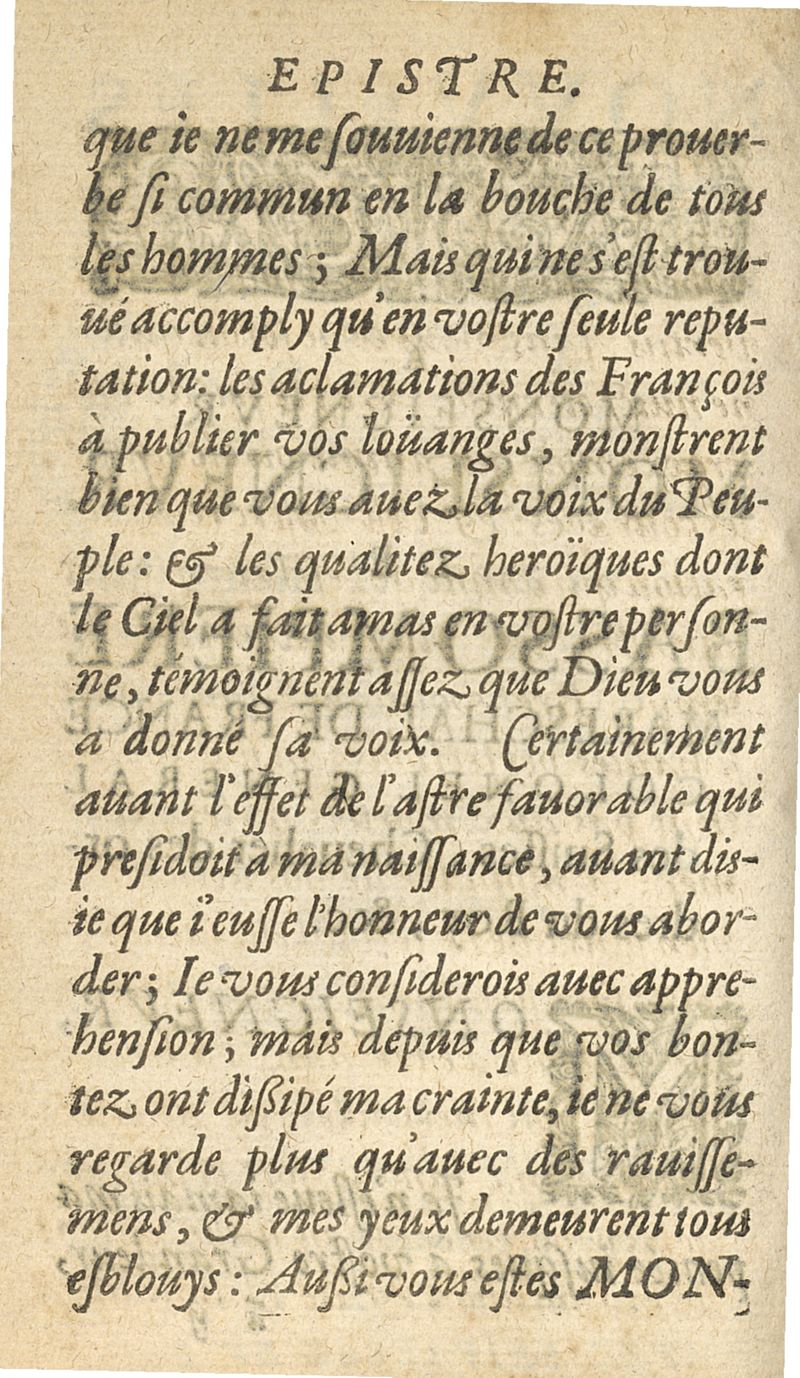 EPISTRE.
que ie ne me ſouuienne de ce prouer-
be ſi commun en la bouche de tous
les hommes ; Mais qui ne s'eſt trou-
ué accomply qu'en voſtre ſeule repu-
tation: les aclamations des François
à publier vos loüanges, monſtrent
bien que vous auez la voix du Peu-
ple: & les qualitez heroïques dont
le Ciel a fait amas en voſtre perſon-
ne, témoignent aſſez que Dieu vous
a donné ſa voix. Certainement
auant l'effet de l'aſtre fauorable qui
preſidoit à ma naiſſance, auant dis-
ie que i'euſſe l'honneur de vous abor-
der; Ie vous conſiderois auec appre-
henſion; mais depuis que vos bon-
tez ont dißipé ma crainte, ie ne vous
regarde plus qu'auec des rauiſſe-
mens, & mes yeux demeurent tous
eſblouys: Außi vous eſtes MON-